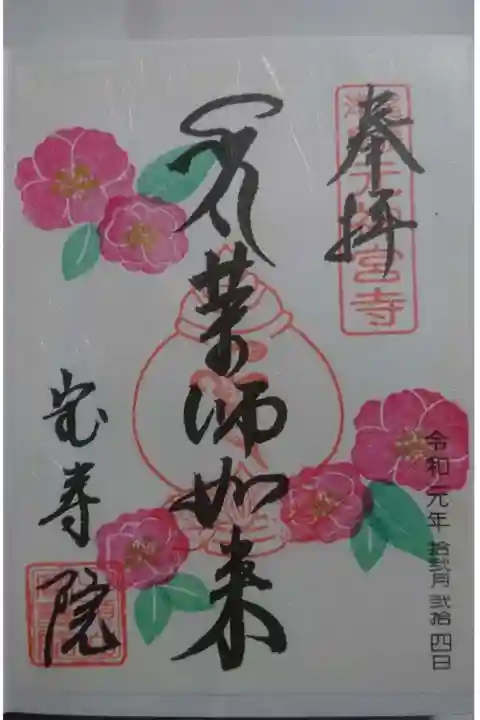 奉拝
元神宮寺
薬師如来
令和元年 拾弐月 弐拾四日
宝寿院